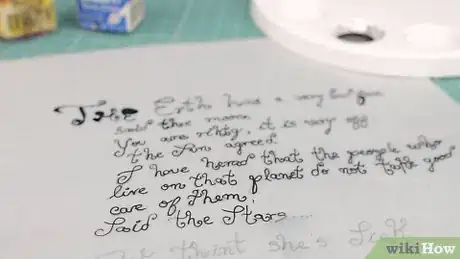 The Erth has a very
said the moon
You are rihty, it is very
the sun agreed.
I have hered that the people who
live on that planet do not take good
care of them,
Said the Stars....
We thint she's Sick
wikiHow